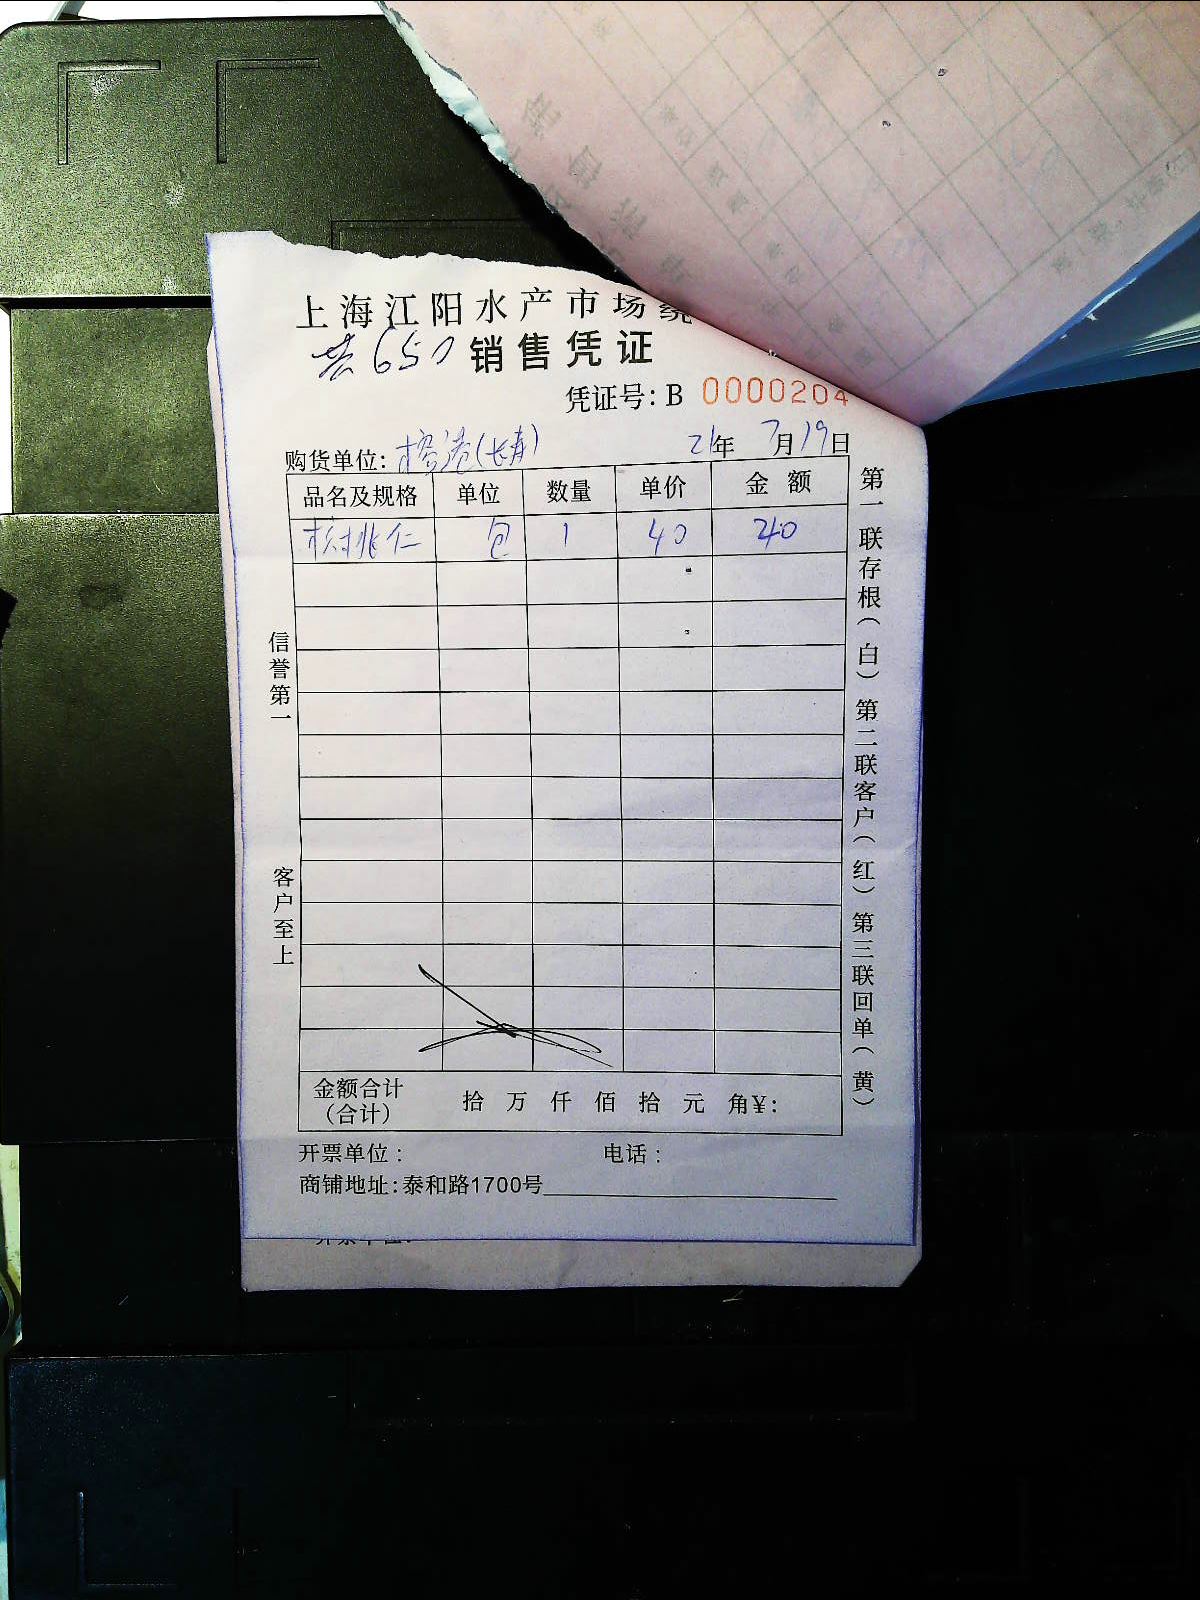 上海江阳水产市场统
共650 销售凭证
凭证号: B 0000204
购货单位: 榕港(长寿) 21年 7月19日
品名及规格 单位 数量 单价 金额
核桃仁 包 1 40 40
信誉第一
客户至上
第一联存根(白) 第二联客户(红) 第三联回单(黄)
金额合计
(合计)
拾 万 仟 佰 拾 元 角¥:
开票单位: 电话:
商铺地址: 泰和路1700号
开票单位: